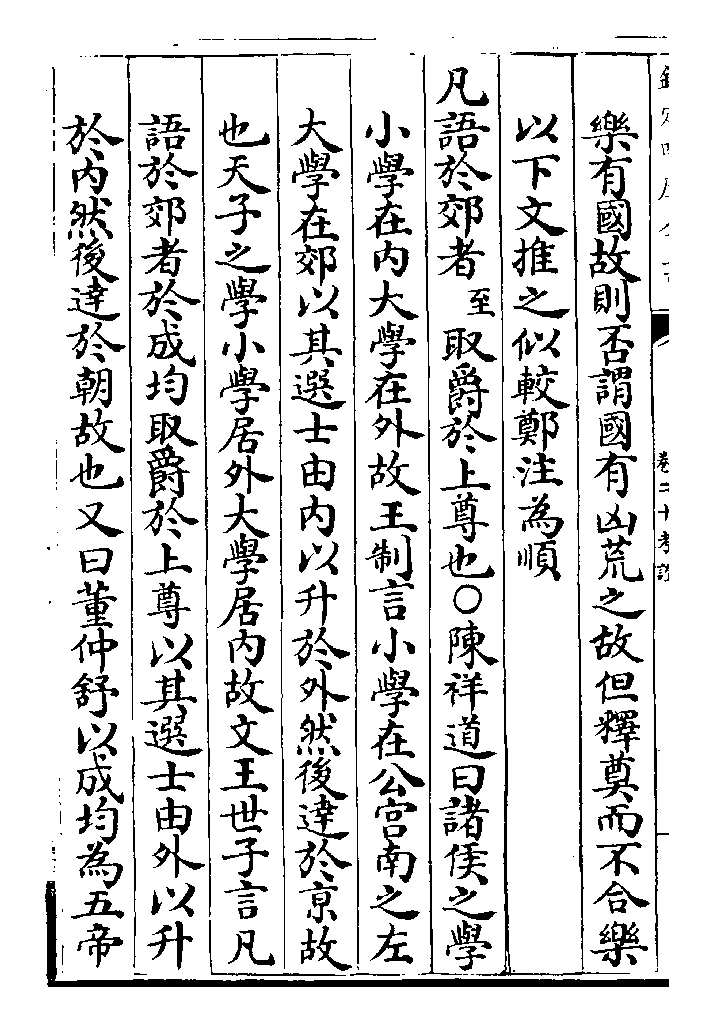 欽定四庫全書
卷二十考證
樂有國故則否謂國有凶荒之故但釋奠而不合樂
以下文推之似較鄭注為順
凡語於郊者至取爵於上尊也○陳祥道曰諸侯之學
小學在内大學在外故王制言小學在公宮南之左
大學在郊以其選士由内以升於外然後達於京故
也天子之學小學居外大學居内故文王世子言凡
語於郊者於成均取爵於上尊以其選士由外以升
於内然後達於朝故也又曰董仲舒以成均為五帝